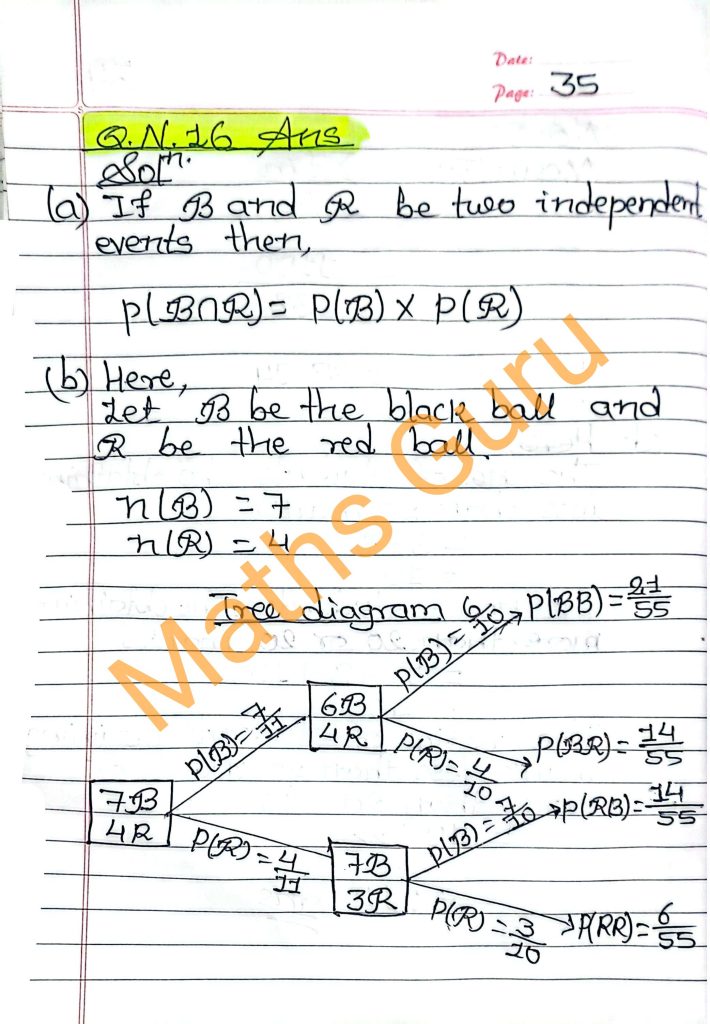 Date:
Page: 35
Q.N.16 Ans
Solⁿ.
(a) If B and R be two independent
events then,
P(B∩R) = P(B) × P(R)
(b) Here,
Let B be the black ball and
R be the red ball.
n(B) = 7
n(R) = 4
Tree diagram
P(B) = 6/10
P(BB) = 21/55
6B
4R
P(B) = 7/11
P(R) = 4/10
P(BR) = 14/55
7B
4R
P(R) = 4/11
7B
3R
P(B) = 7/10
P(RB) = 14/55
P(R) = 3/10
P(RR) = 6/55
Maths Guru